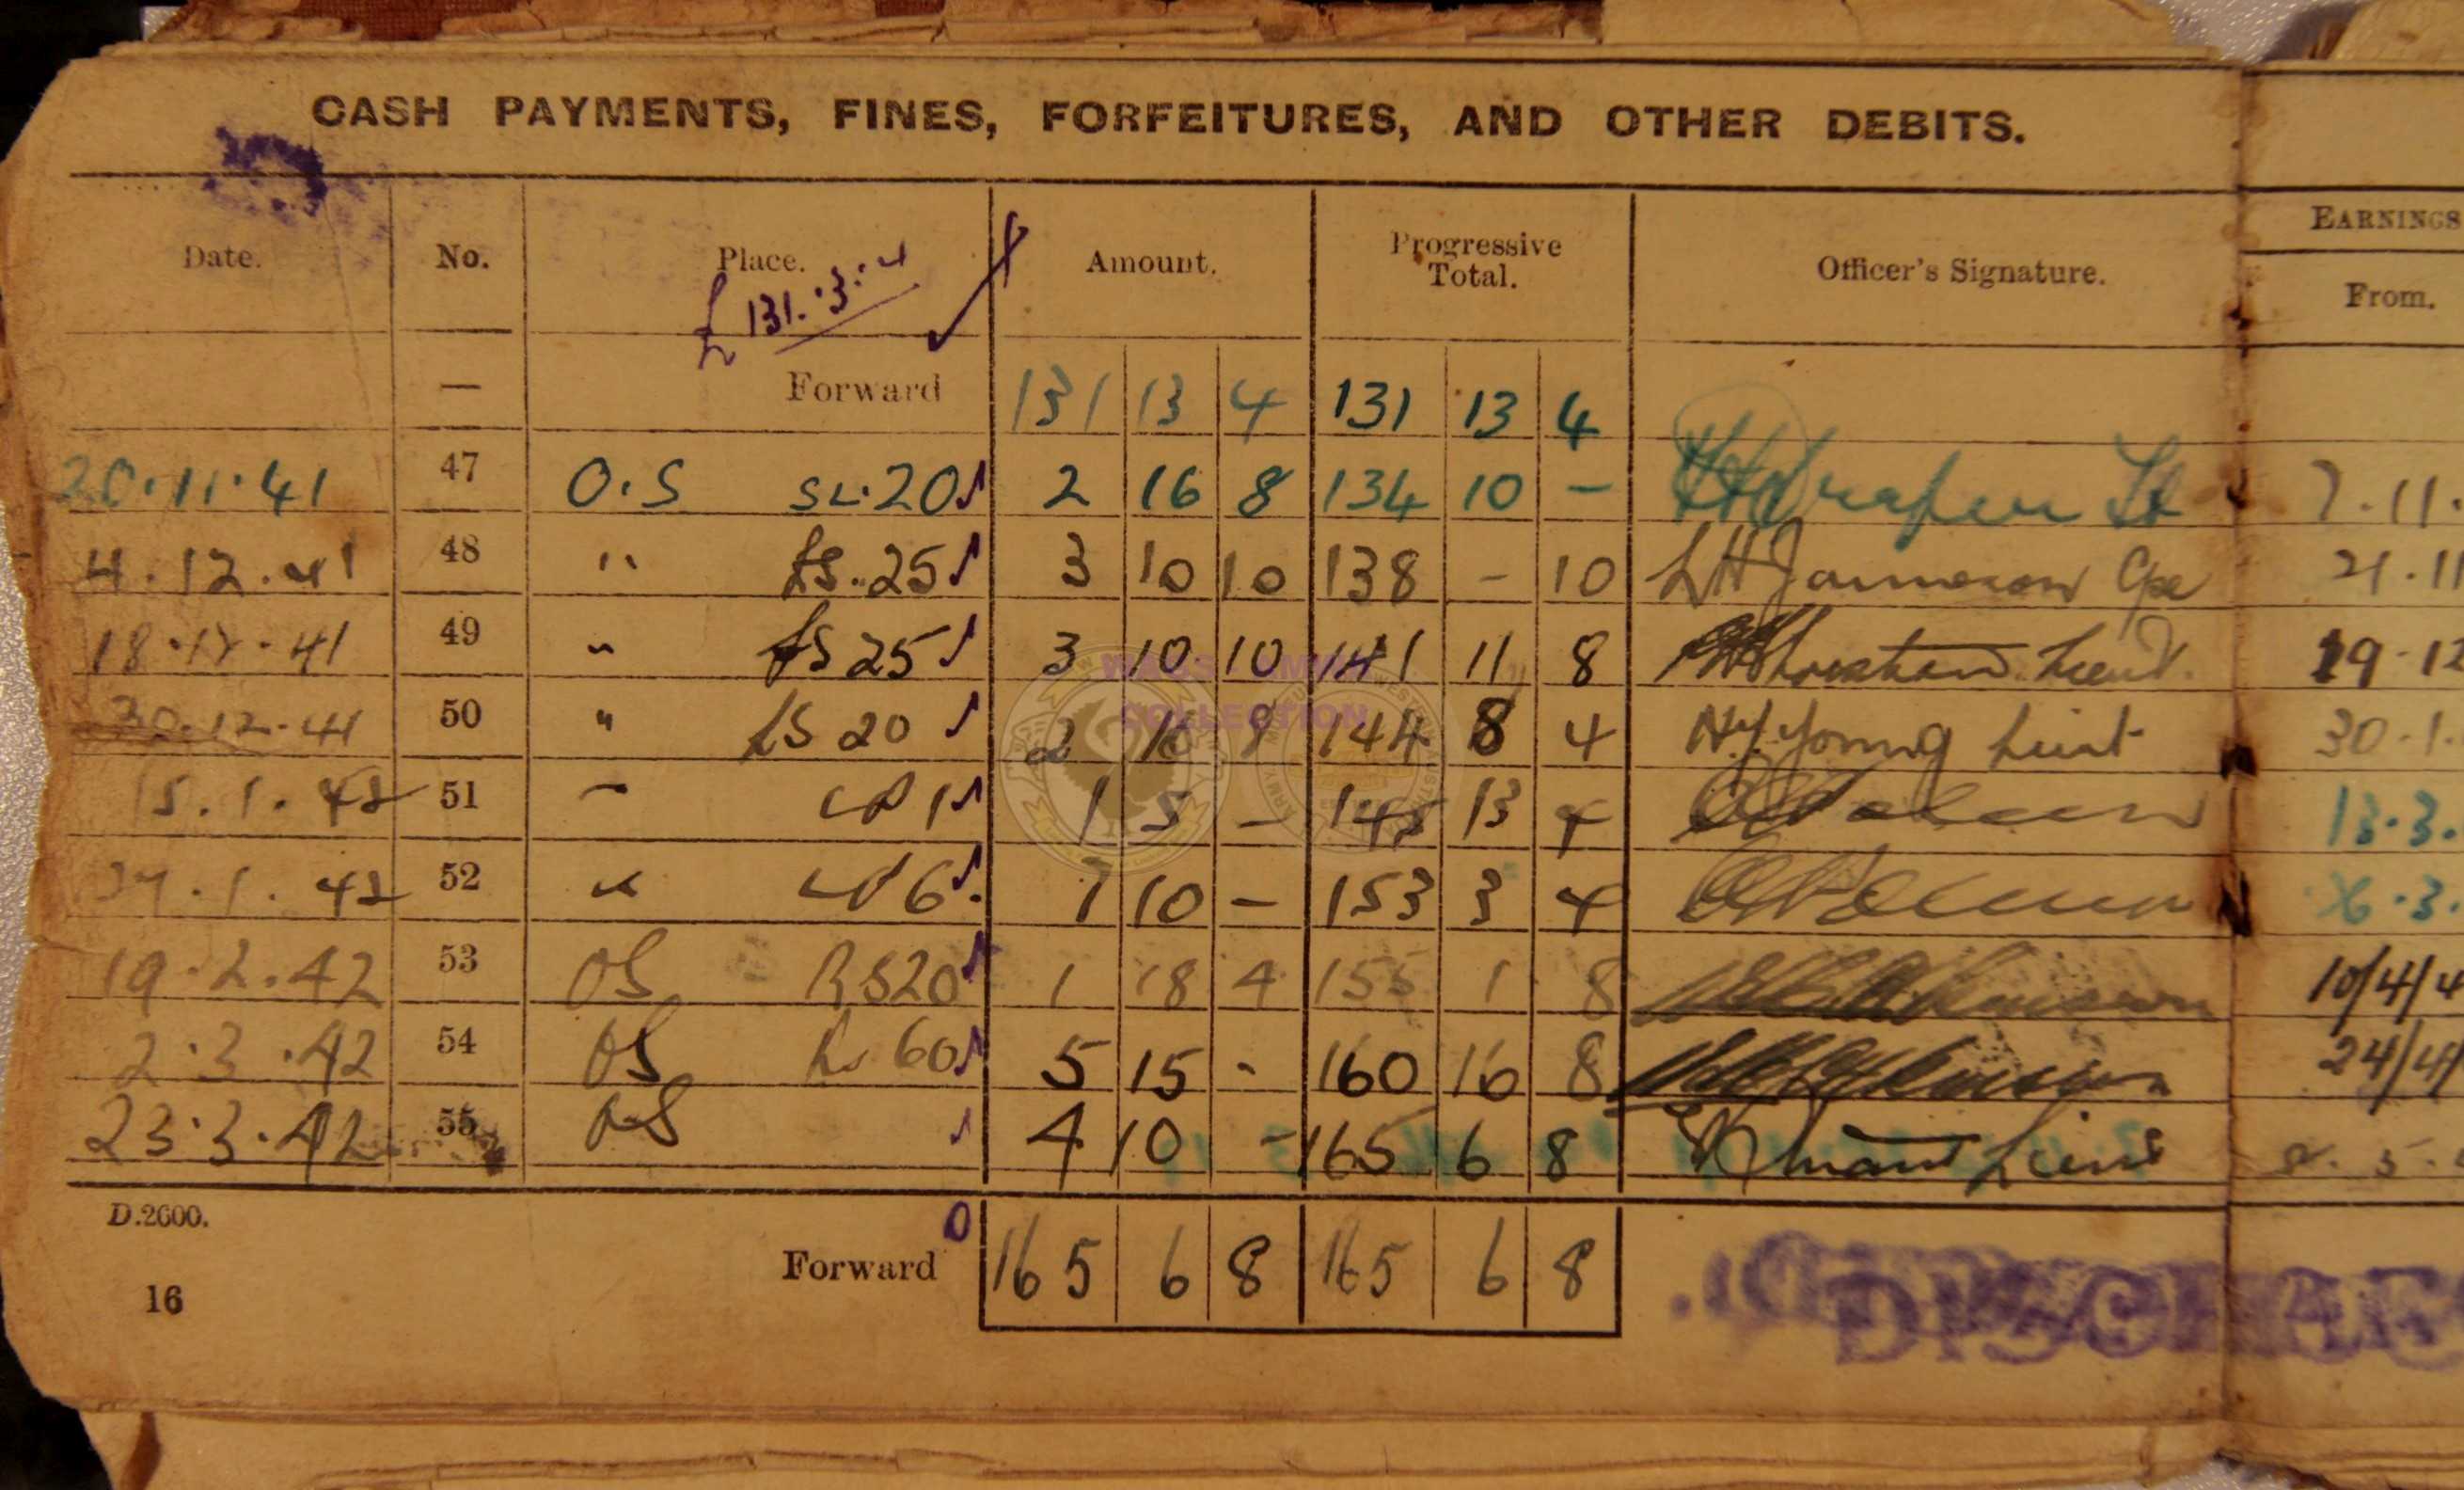 CASH PAYMENTS, FINES, FORFEITURES, AND OTHER DEBITS.
Date. No. Place. Amount. Progressive Total. Officer's Signature. EARNINGS
From.
£131.3.4
— Forward 131 13 4 131 13 4
20.11.41 47 O.S SL.20 2 16 8 134 10 - Lt 7.11.
4.12.41 48 " £S.25 3 10 10 138 - 10 LH Jamieson Cpt 21.11
18.12.41 49 " £S 25 3 10 10 141 11 8 Lieut. 19.12
30.12.41 50 " £S 20 2 16 8 144 8 4 H.J. Young Lieut 30.1.
15.1.42 51 " LP 1 1 5 - 145 13 4 13.3.
29.1.42 52 " LP 6 7 10 - 153 3 4 26.3.
19.2.42 53 OS RS20 1 18 4 155 1 8 10/4/4
2.3.42 54 OS Rs 60 5 15 - 160 16 8 24/4/
23.3.42 55 OS 4 10 - 165 6 8 Lieut 8.5.
D.2600.
Forward 165 6 8 165 6 8
16
COLLECTION